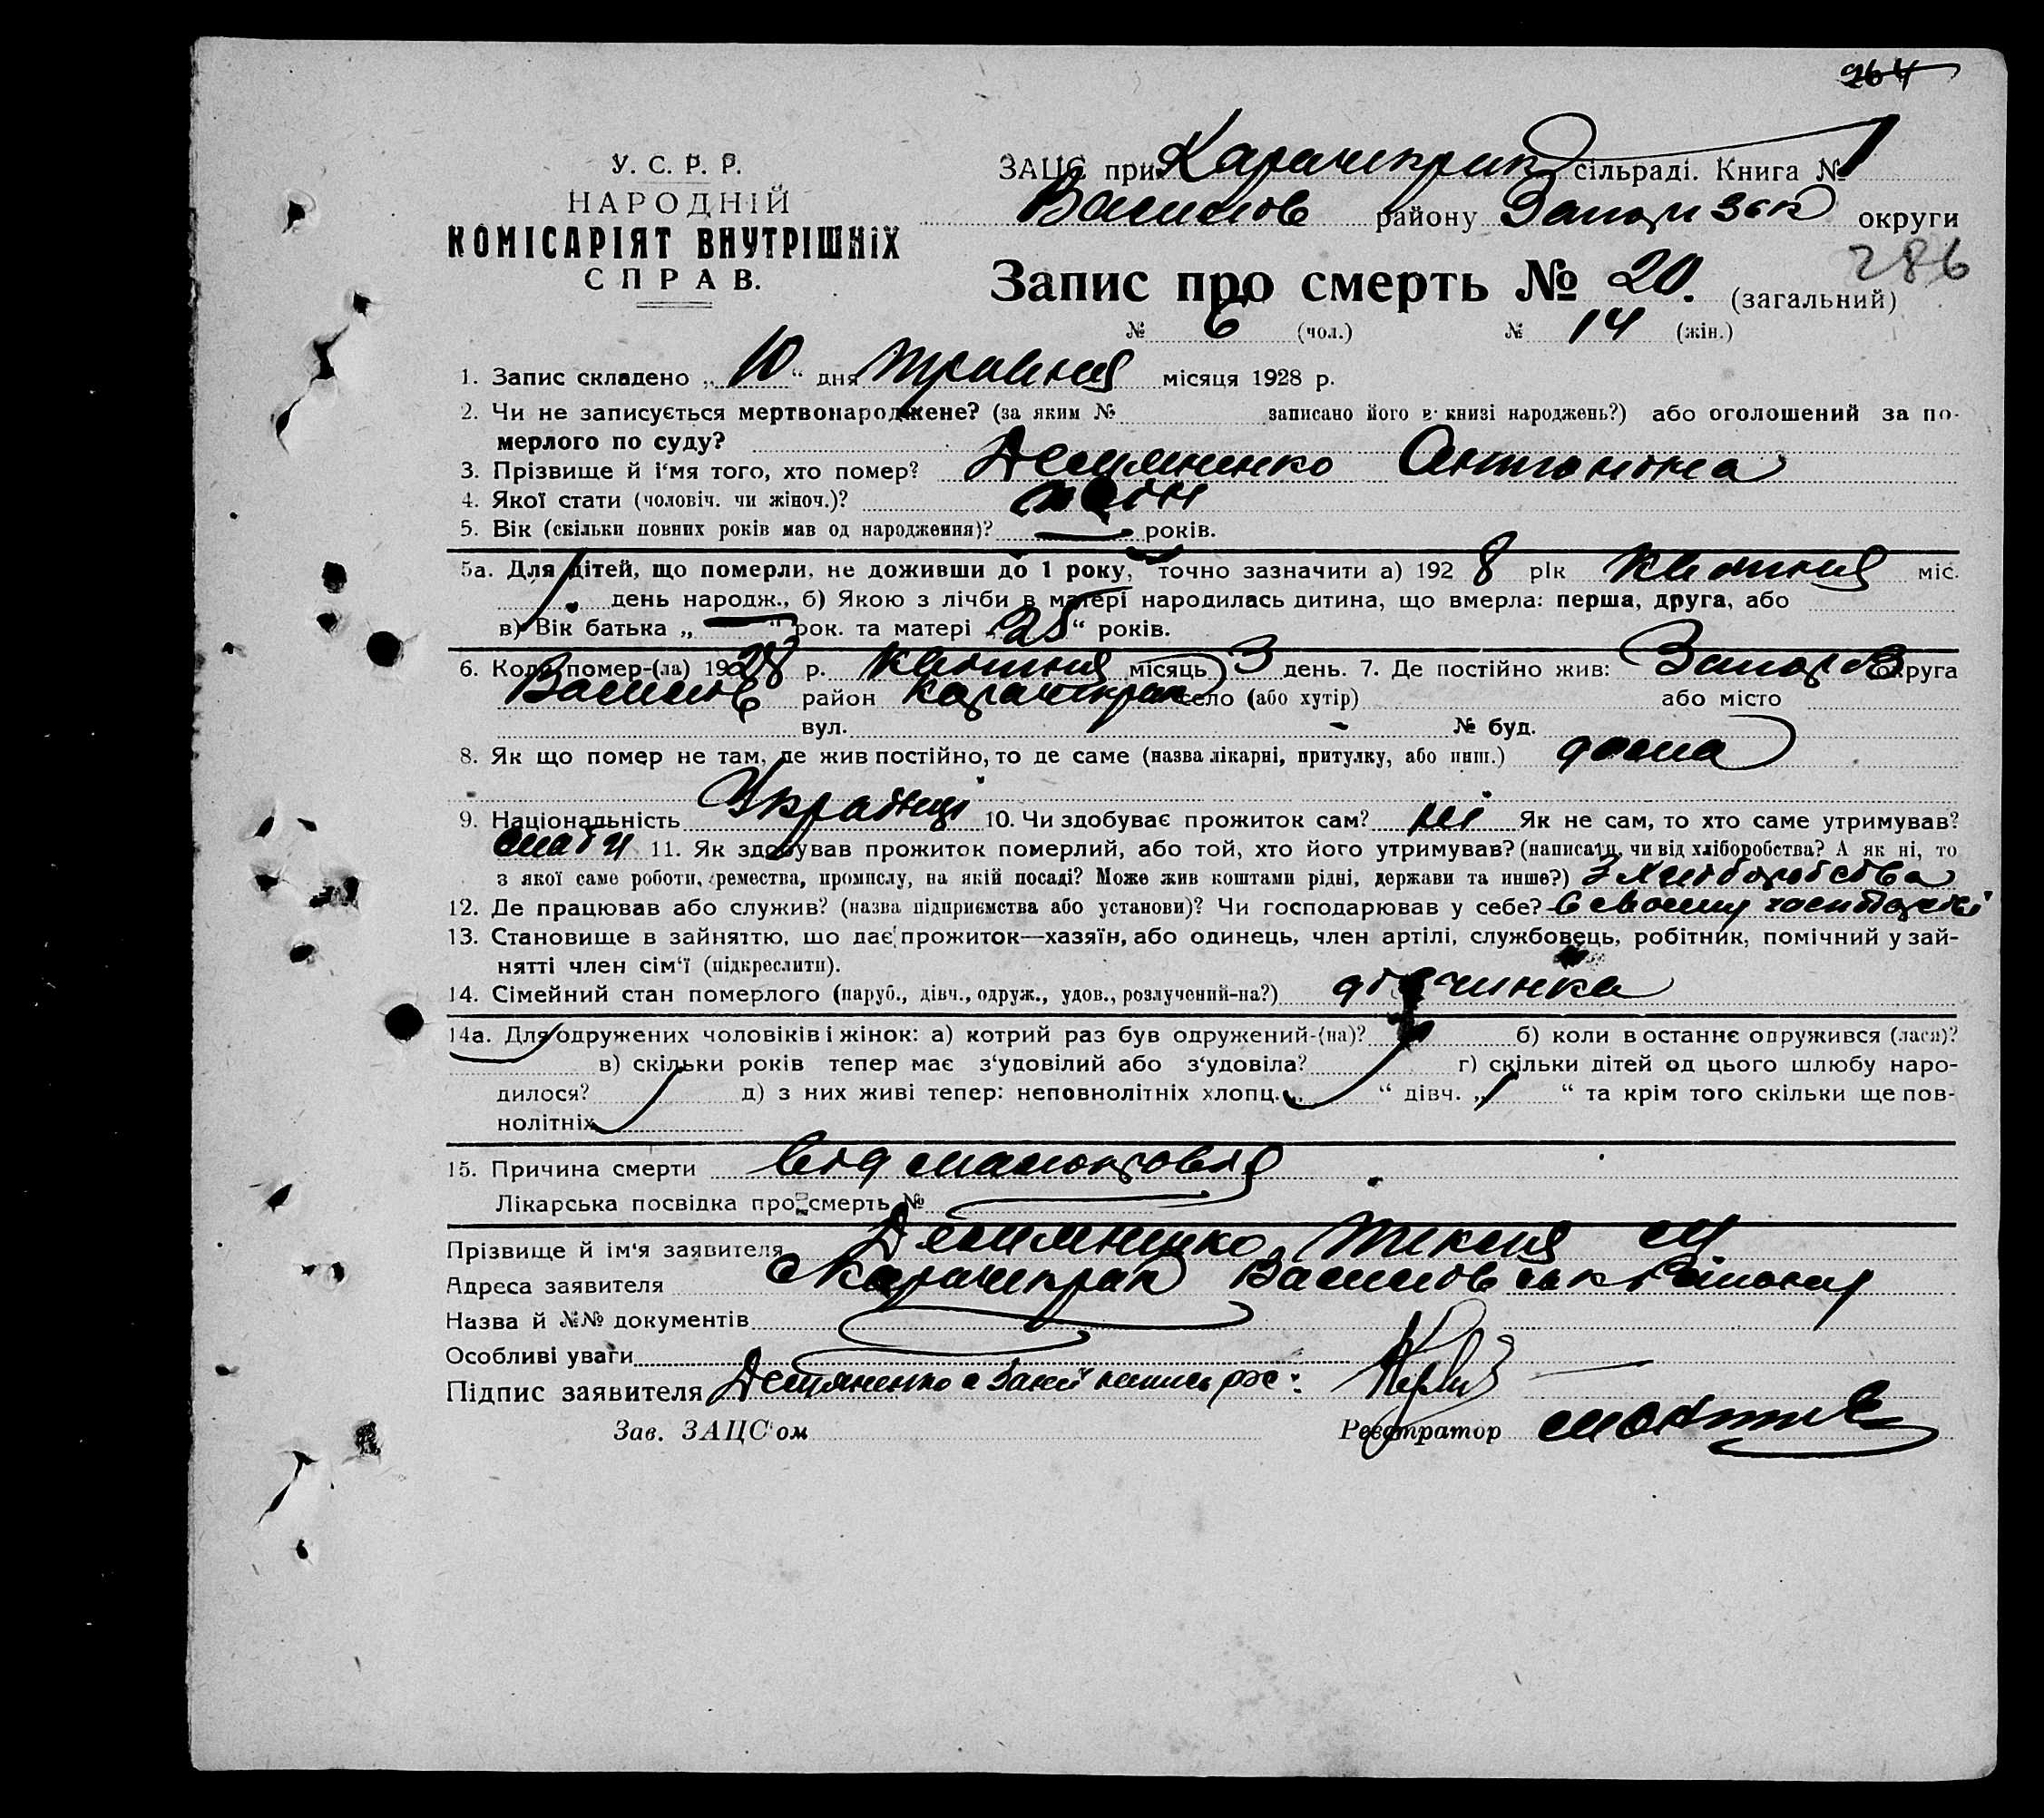 264
У. С. Р. Р.
НАРОДНІЙ
КОМІСАРІЯТ ВНУТРІШНІХ
СПРАВ.
ЗАЦС при Карачекрак сільраді. Книга № 1
Василів району Запорізьк округи
286
Запис про смерть № 20. (загальний)
№ 6 (чол.) № 14 (жін.)
1. Запис складено „ 10 “ дня травня місяця 1928 р.
2. Чи не записується мертвонароджене? (за яким № записано його в книзі народжень?) або оголошений за по-
мерлого по суду?
3. Прізвище й і'мя того, хто помер? Антоніна
4. Якої стати (чоловіч. чи жіноч.)?
5. Вік (скільки повних років мав од народження)? — років.
5а. Для дітей, що померли, не доживши до 1 року, точно зазначити а) 192 8 рік квітня міс.
день народж., б) Якою з лічби в матері народилась дитина, що вмерла: перша, друга, або
в) Вік батька „ — “ рок. та матері „ 25 “ років.
6. Коли помер-(ла) 1928 р. квітня місяць 3 день. 7. Де постійно жив: Запоріз округа
Василів район Карачекрак село (або хутір) або місто
вул. - № буд.
8. Як що помер не там, де жив постійно, то де саме (назва лікарні, притулку, або инш.) дома
9. Національність Українці 10. Чи здобуває прожиток сам? ні Як не сам, то хто саме утримував?
мати 11. Як здобував прожиток померлий, або той, хто його утримував? (написати, чи від хліборобства? А як ні, то
з якої саме роботи, ремества, промислу, на якій посаді? Може жив коштами рідні, держави та инше?) З хліборобства
12. Де працював або служив? (назва підприємства або установи)? Чи господарював у себе? в своему
13. Становище в зайняттю, що дає прожиток—хазяїн, або одинець, член артілі, службовець, робітник, помічний у зай-
нятті член сім'ї (підкреслити).
14. Сімейний стан померлого (паруб., дівч., одруж., удов., розлучений-на?) дівчинка
14а. Для одружених чоловіків і жінок: а) котрий раз був одружений-(на)? б) коли в останнє одружився (лася)?
в) скільки років тепер має з'удовілий або з'удовіла? г) скільки дітей од цього шлюбу наро-
дилося? д) з них живі тепер: неповнолітніх хлопц. „ “ дівч. „ “ та крім того скільки ще пов-
нолітніх
15. Причина смерти від
Лікарська посвідка про смерть №
Прізвище й ім'я заявителя Текля М
Адреса заявителя с Карачекрак Василівськ району
Назва й №№ документів
Особливі уваги
Підпис заявителя
Зав. ЗАЦС'ом Реєстратор